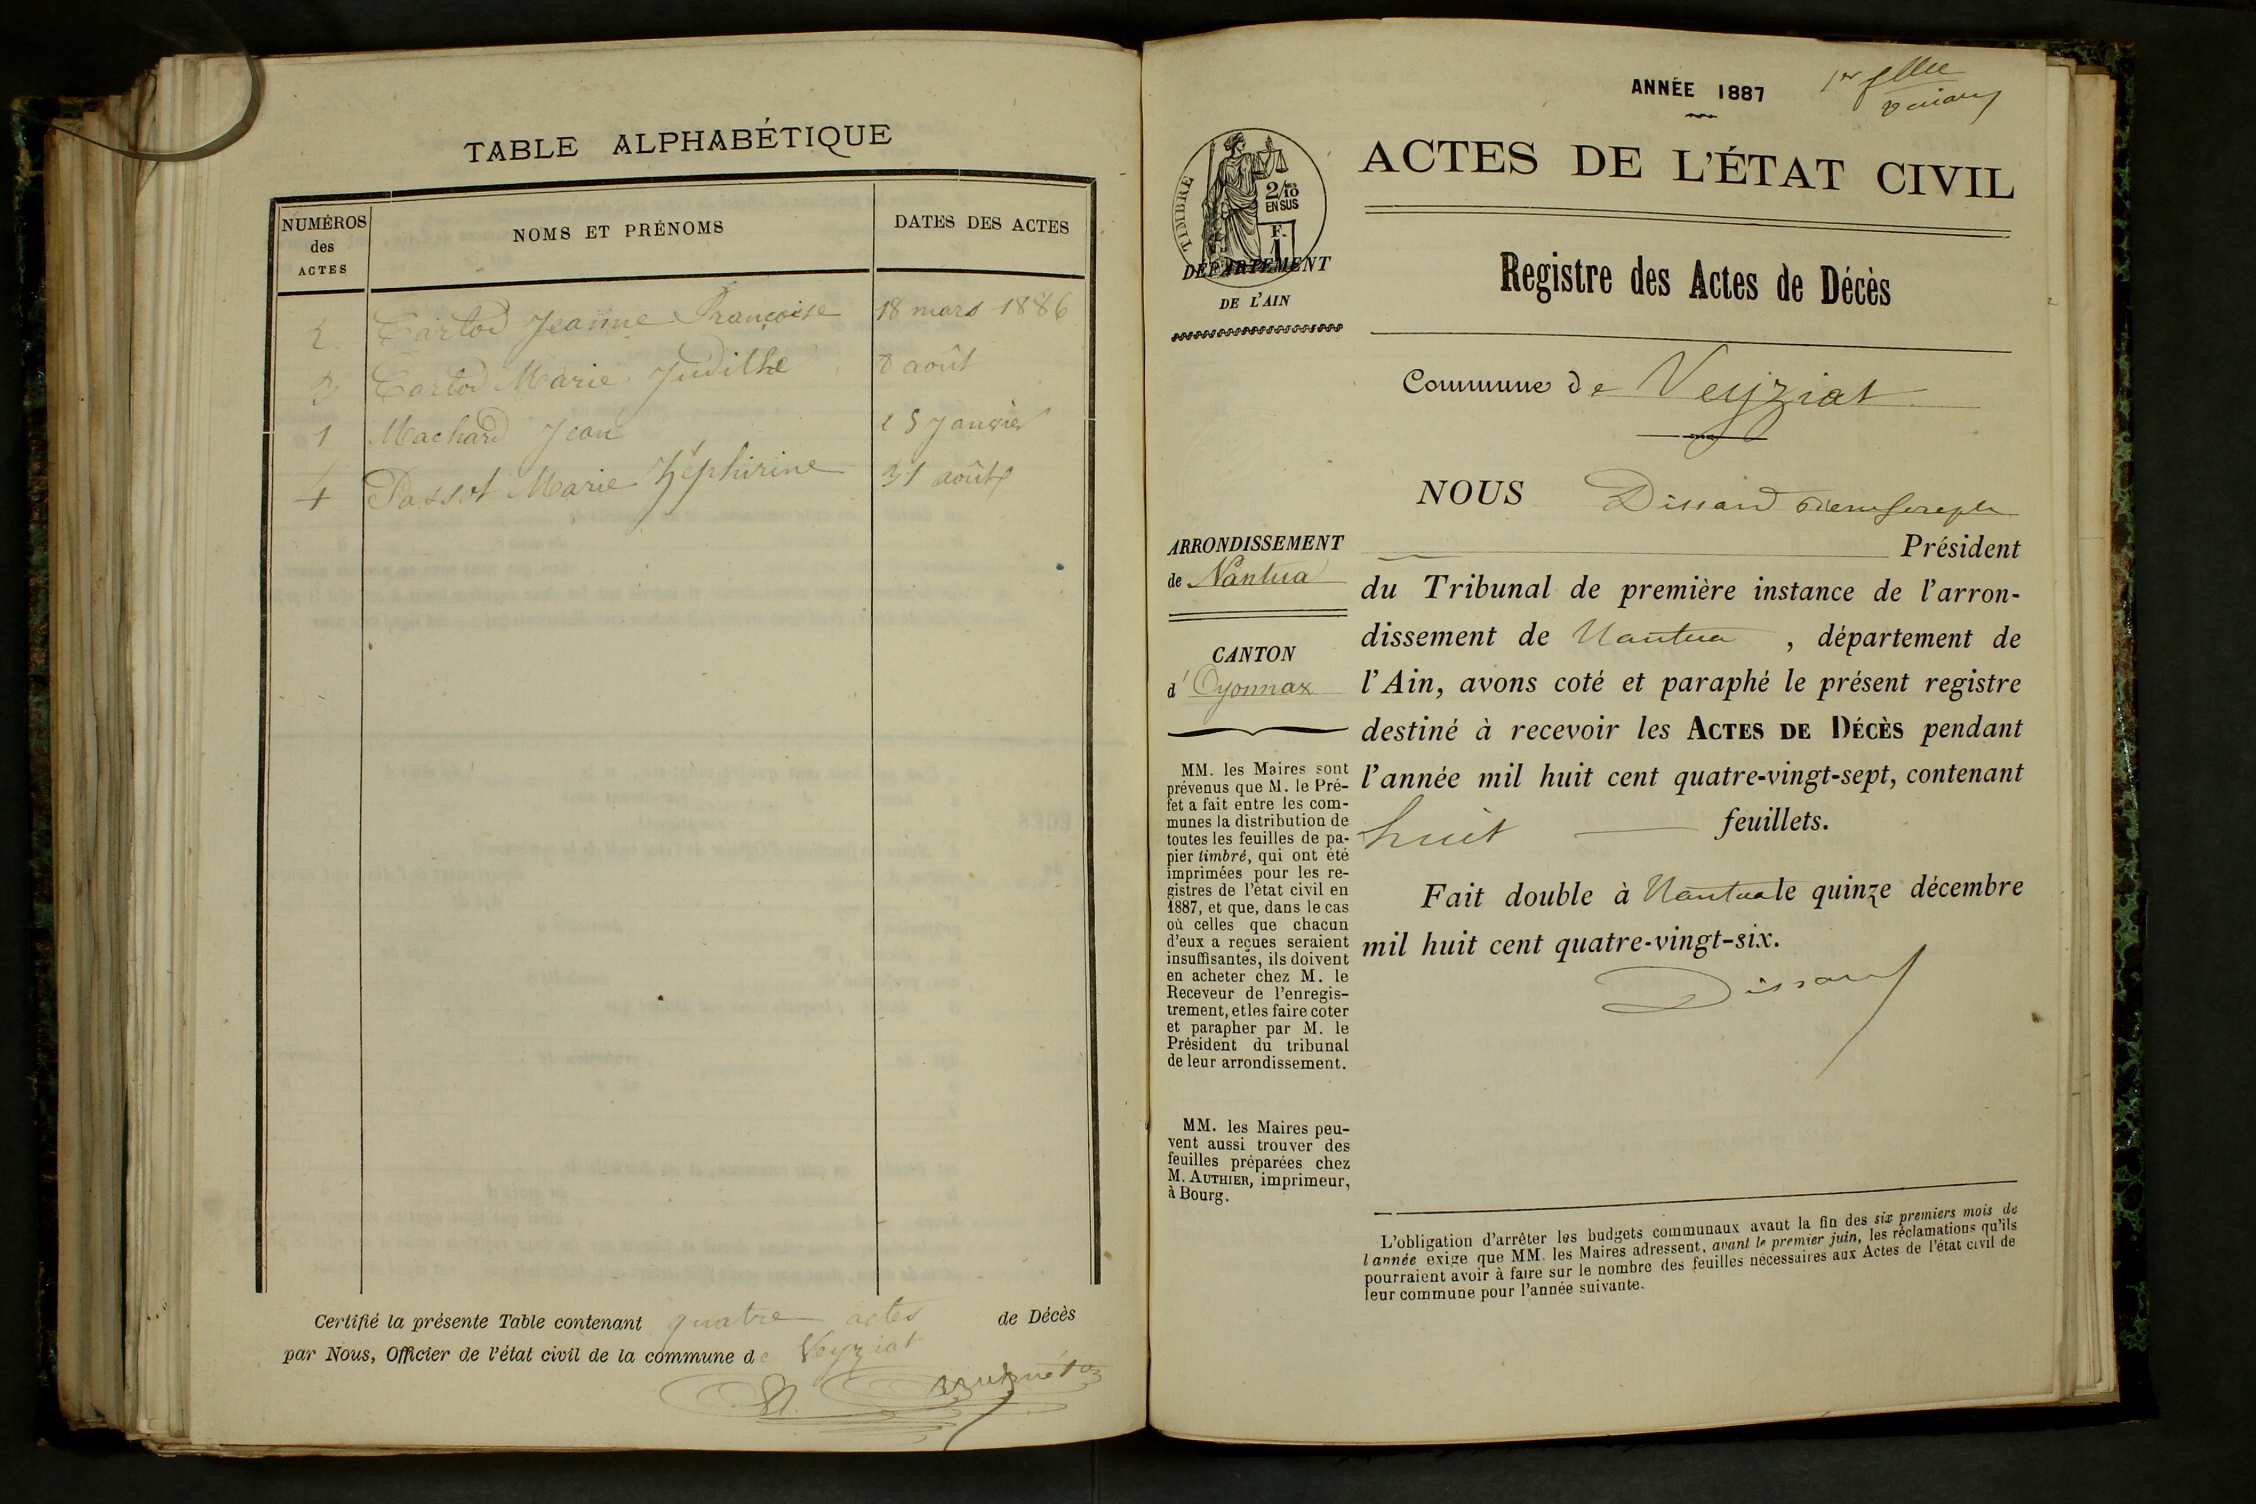 TABLE ALPHABÉTIQUE
NUMÉROS
des
ACTES
NOMS ET PRÉNOMS
DATES DES ACTES
2 Cartod Jeanne Françoise 18 mars 1886
3 Cartod Marie Judithe 8 août
1 Machard Jean 25 Janvier
4 Passot Marie Zéphirine 31 août
Certifié la présente Table contenant quatre actes de Décès
par Nous, Officier de l'état civil de la commune de Veyziat
ANNÉE 1887
1er
ACTES DE L'ÉTAT CIVIL
TIMBRE
2/10
EN SUS
F.
1
DÉPARTEMENT
DE L'AIN
Registre des Actes de Décès
Commune de Veyziat
ARRONDISSEMENT
de Nantua
CANTON
d'Oyonnax
MM. les Maires sont
prévenus que M. le Pré-
fet a fait entre les com-
munes la distribution de
toutes les feuilles de pa-
pier timbré, qui ont été
imprimées pour les re-
gistres de l'état civil en
1887, et que, dans le cas
où celles que chacun
d'eux a reçues seraient
insuffisantes, ils doivent
en acheter chez M. le
Receveur de l'enregis-
trement, et les faire coter
et parapher par M. le
Président du tribunal
de leur arrondissement.
MM. les Maires peu-
vent aussi trouver des
feuilles préparées chez
M. AUTHIER, imprimeur,
à Bourg.
NOUS Dissard Joseph
Président
du Tribunal de première instance de l'arron-
dissement de Nantua, département de
l'Ain, avons coté et paraphé le présent registre
destiné à recevoir les ACTES DE DÉCÈS pendant
l'année mil huit cent quatre-vingt-sept, contenant
huit feuillets.
Fait double à Nantua le quinze décembre
mil huit cent quatre-vingt-six.
Dissard
L'obligation d'arrêter les budgets communaux avant la fin des six premiers mois de
l'année exige que MM. les Maires adressent, avant le premier juin, les réclamations qu'ils
pourraient avoir à faire sur le nombre des feuilles nécessaires aux Actes de l'état civil de
leur commune pour l'année suivante.